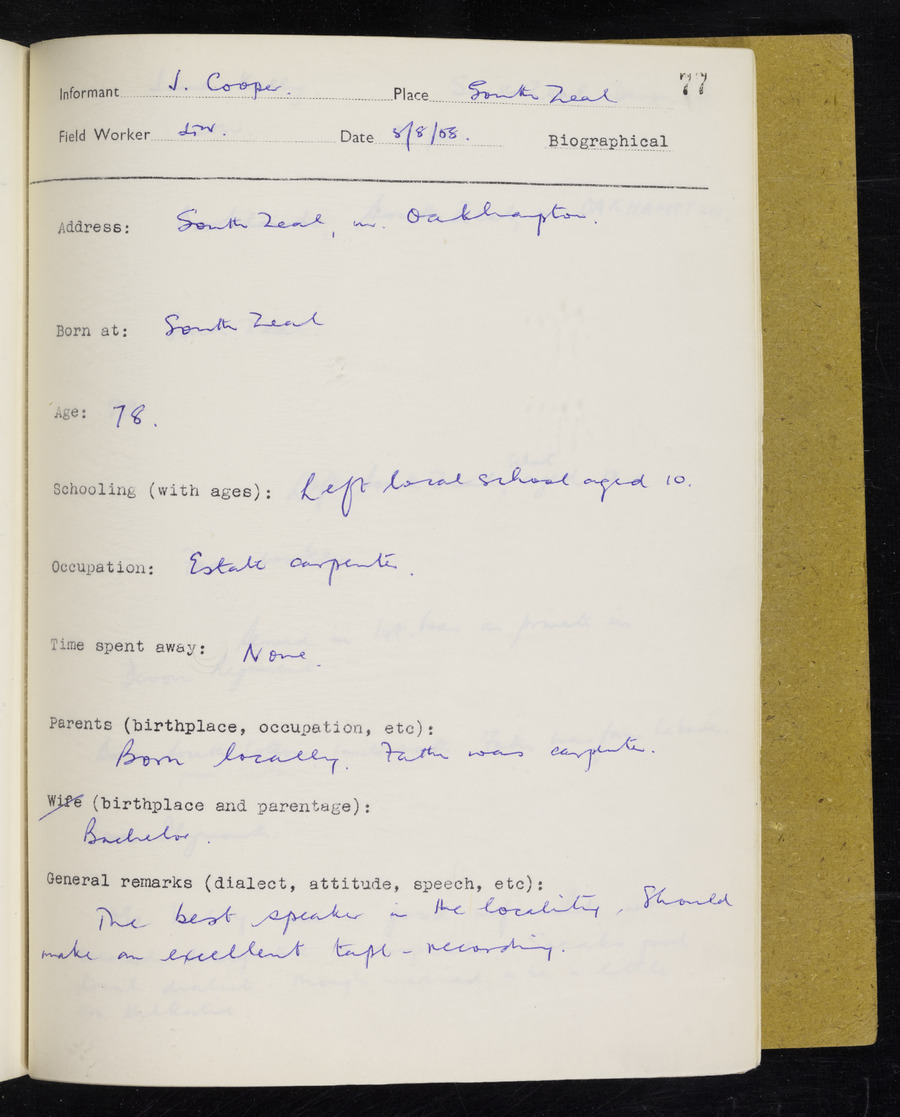 77
Informant J. Cooper. Place South Zeal
Field Worker Date 5/8/58. Biographical
Address: South Zeal, nr. Oakhampton.
Born at: South Zeal
Age: 78.
Schooling (with ages): Left local school aged 10.
Occupation: Estate carpenter.
Time spent away: None.
Parents (birthplace, occupation, etc):
Born locally. Father was carpenter.
Wife (birthplace and parentage):
Bachelor.
General remarks (dialect, attitude, speech, etc):
The best speaker in the locality. Should
make an excellent tape-recording.